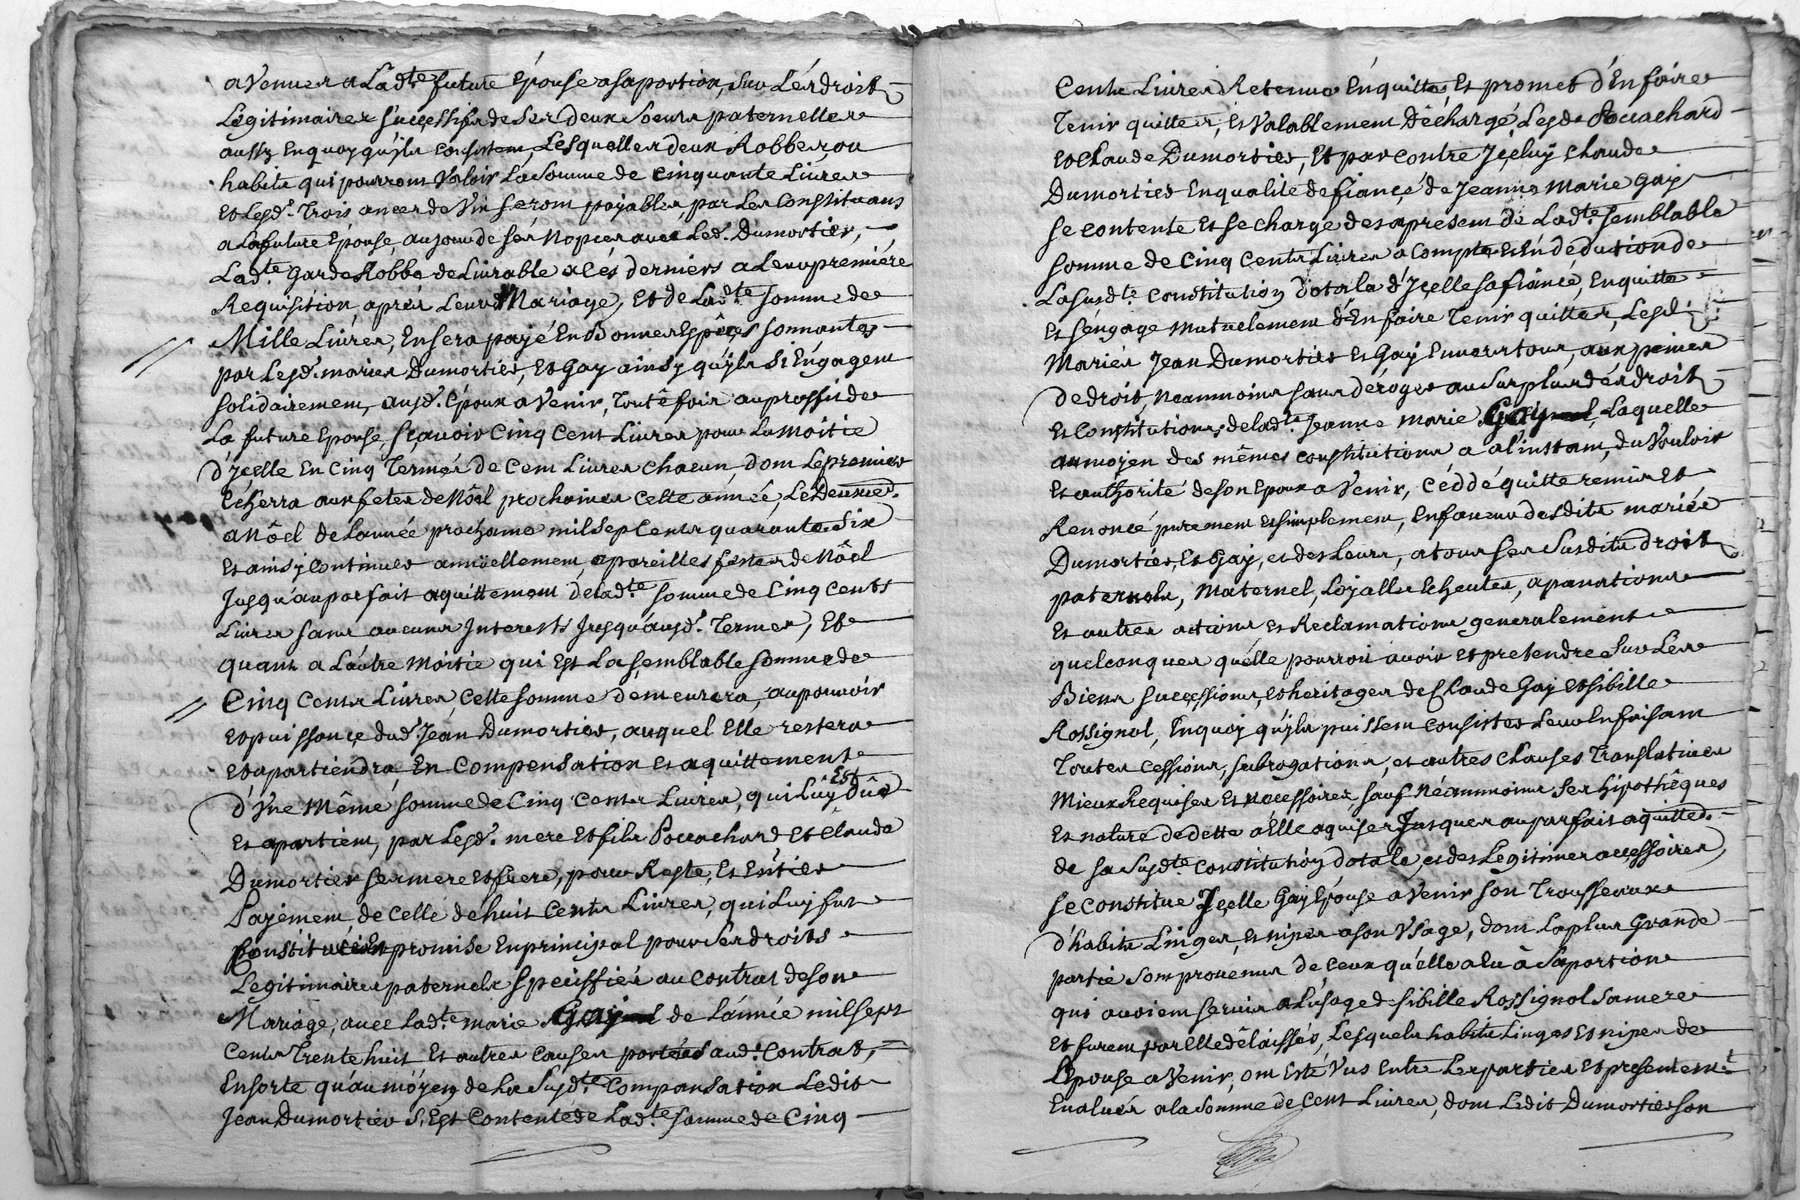 a venuer a Ladte future Epouse asaportion, sur Lesdroits
Legitimaires sucçessifs de Ses deux Soeurs paternelles
aussy En quoy qu'ils consistem, Lesquelles deux Robbes, ou
habits qui pourrons Valoir La Somme de Cinquante Livres
Et Lesds. Trois ances de Vin serom payables, par Les Constituans
a La future Epouse, au jour de ses Nopces avec Led. Dumortier,
Ladte garde Robbe de Livrable a Ces derniers a Leur premiére
Requisition, aprés Leurd Mariage, Et de Ladte Somme de
Mille Livres, En sera payé En Bonnes Espêçes sonnantes
par Lesd. mariés Dumortier, Et Gay ainsy qu'ils Si Engagem
Solidairement, ausd. Epoux a Venir, Toutefois au proffit de
La future Epouse, sçavoir Cinq Cent Livres pour La Moitié
d'Içelle En Cinq Termes de Cem Livres chacun, dom Le premier
Echerra aux fetes de Nôel prochaines Cette année, Le Deuxied.
a Nôel de L'année prochaine mil sept Cents quarante Six
Et ainsy Continuer annüellement, a pareilles festes de Nôel
Jusqu'au parfait aquittement de Ladte Somme de Cinq Cents
Livres sans aucuns Interests Jusqu'ausd. Termes, Et
quant a L'autre Moitié qui Est La semblable Somme de
Cinq Cents Livres, Cette Somme demeurera, au pouvoir
Et puissançe dud. Jean Dumortier, auquel Elle restera
Et apartiendra, En Compensation Et aquittement
d'Une Même Somme de Cinq Cents Livres, qui Luy Est Dûe
Et apartiem, par Lesd. mere Et fils Pocachard Et Claude
Dumortier ses mere Et frere, pour Reste, Et Entier
Payement de Celle de huit Cents Livres, qui Luy fut
Constituée promise En principal pour Ses droits
Legitimaires paternels Speciffiés au Contrat de son
Mariage, avec Ladte marie Gay de L'année mil sept
Cents Trente huit Et autres Causes portées aud. Contrat,
Ensorte qu'au moyen de La Susdte Compansation Ledit
Jean Dumortier S'Est Contenté de Ladte Somme de Cinq
Cents Livres Retenue En quitte, Et promet d'En faire
Tenir quittes, Et Valablement Déchargé, Lesds Pocachard
Et Claude Dumortier, Et par contre Içeluy Claude
Dumortier En qualité de fiançé de Jeanne Marie Gay
se contente Et se charge des apresent de Ladte semblable
somme de Cinq Cents Livres a Compte Et En dedution de
La susdte Constitution Dotale d'Içelle sa fiancé, En quitte
Et s'engage Mutuelement d'En faire Tenir quittes, Lesd.
Mariés Jean Dumortier Et Gay Envers tous, aux peines
de droit, Neammoins sans déroger au Surplus des droits
Et Constitutions de Ladte Jeanne Marie Gay, Laquelle
au moyen des mêmes constitutions a a l'instam, du Vouloir
Et authorité de son Epoux a Venir, Céddé quitte remis Et
Renoncé purement Et simplement, En faveur desdits mariés
Dumortier, Et Gay, et des Leurs, a tous ses Susdits droits
paternels, Maternel, Loyalles Echeutes, aparations
Et autres actions Et Reclamations generalement
quelconques qu'elle pourroit avoir Et pretendre Sur Les
Biens Successions, Et heritages de Claude Gay Et Sibille
Rossignol, En quoy qu'ils puissem Consister Leur En faisam
Toutes Cessions, subrogations, et autres Clauses Translatives
Mieux Requises Et Neccessoires, sauf Néammoins Ses hipothêques
Et nature de dette a Elle aquises Jusques au parfait aquitted.
de sa Susdte Constitution Dotale, et des Legitimes accessoires
se constitue Içelle Gay Epouse a Venir son Trousseaux
d'habits Linges, Et nipes a son Usage, dont La plus Grande
partie som provenus de ceux qu'elle a Eu à Sa portion
qui avoiem Servis a L'usage de Sibille Rossignol Sa mere
Et furem par Elle délaissés, Lesquels habits Linges Et nipes de
L'Epouse a Venir, om Esté Vus Entre Les parties Et presentemt
Evalués a la Somme de Cent Livres, dom Ledit Dumortier Son